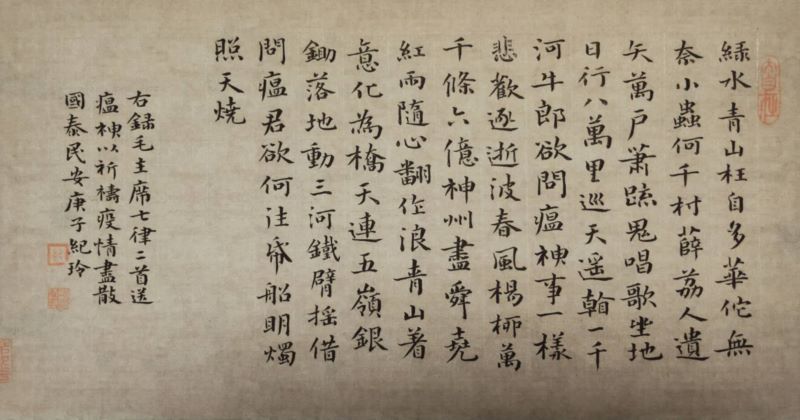 緑水青山枉自多華佗無
奈小蟲何千村薜荔人遺
矢萬户蕭踈鬼唱歌坐地
日行八萬里巡天遥翰一千
河牛郎欲問瘟神事一樣
悲歡逐逝波春風楊栁萬
千條六億神州盡舜堯
紅雨隨心翻作浪青山著
意化為橋天連五嶺銀
鋤落地動三河鐵臂揺借
問瘟君欲何往帋船明燭
照天燒
右録毛主席七律二首送
瘟神以祈禱疫情盡散
國泰民安庚子紀玲